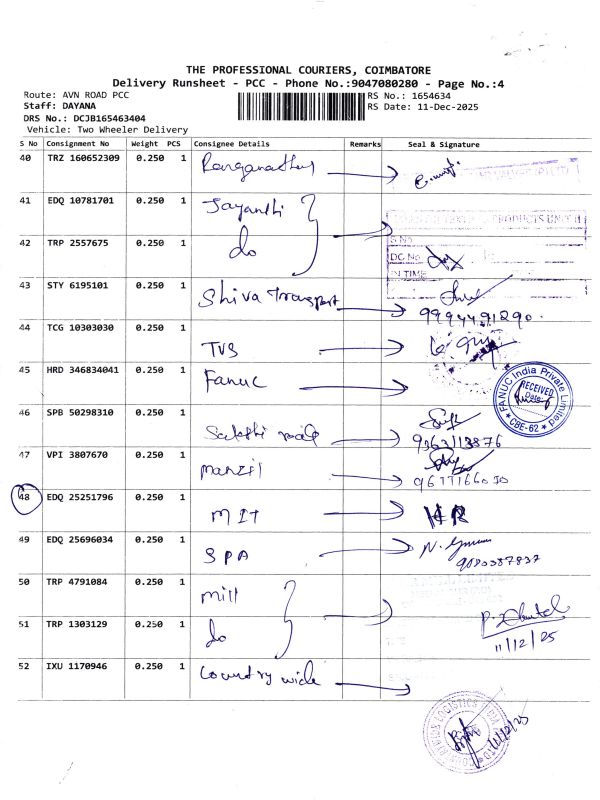 THE PROFESSIONAL COURIERS, COIMBATORE
Delivery Runsheet - PCC - Phone No.:9047080280 - Page No.:4
Route: AVN ROAD PCC
RS No.: 1654634
Staff: DAYANA
RS Date: 11-Dec-2025
DRS No.: DCJB165463404
Vehicle: Two Wheeler Delivery
S No Consignment No Weight PCS Consignee Details Remarks Seal & Signature
40 TRZ 160652309 0.250 1
41 EDQ 10781701 0.250 1 Jayanthi
PRODUCTS UNIT II
42 TRP 2557675 0.250 1 do
S NO
DC No
IN TIME
43 STY 6195101 0.250 1 Shiva Transport
9994491290
44 TCG 10303030 0.250 1 TVS
45 HRD 346834041 0.250 1 Fanuc
FANUC India Private Limited
RECEIVED
Date
CBE-62
46 SPB 50298310 0.250 1
9363113876
47 VPI 3807670 0.250 1 manzil
48 EDQ 25251796 0.250 1 MIT HR
49 EDQ 25696034 0.250 1 SPA
50 TRP 4791084 0.250 1 mill
51 TRP 1303129 0.250 1 do
11/12/25
52 IXU 1170946 0.250 1 country wide
LOGISTICS
11/12/25